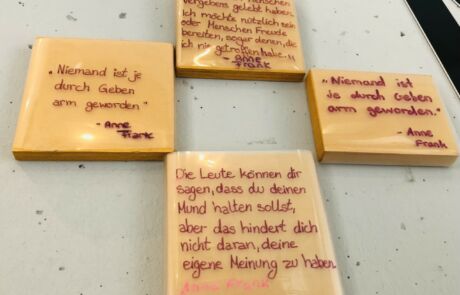 vergebens gelebt haben.
Ich möchte nützlich sein
oder Menschen Freude
bereiten, sogar denen, die
ich nie getroffen habe."
- Anne
Frank
„Niemand ist je
durch Geben
arm geworden"
- Anne
Frank
„Niemand ist
je durch Geben
arm geworden."
- Anne
Frank
Die Leute können dir
sagen, dass du deinen
Mund halten sollst,
aber das hindert dich
nicht daran, deine
eigene Meinung zu haben
Anne Frank